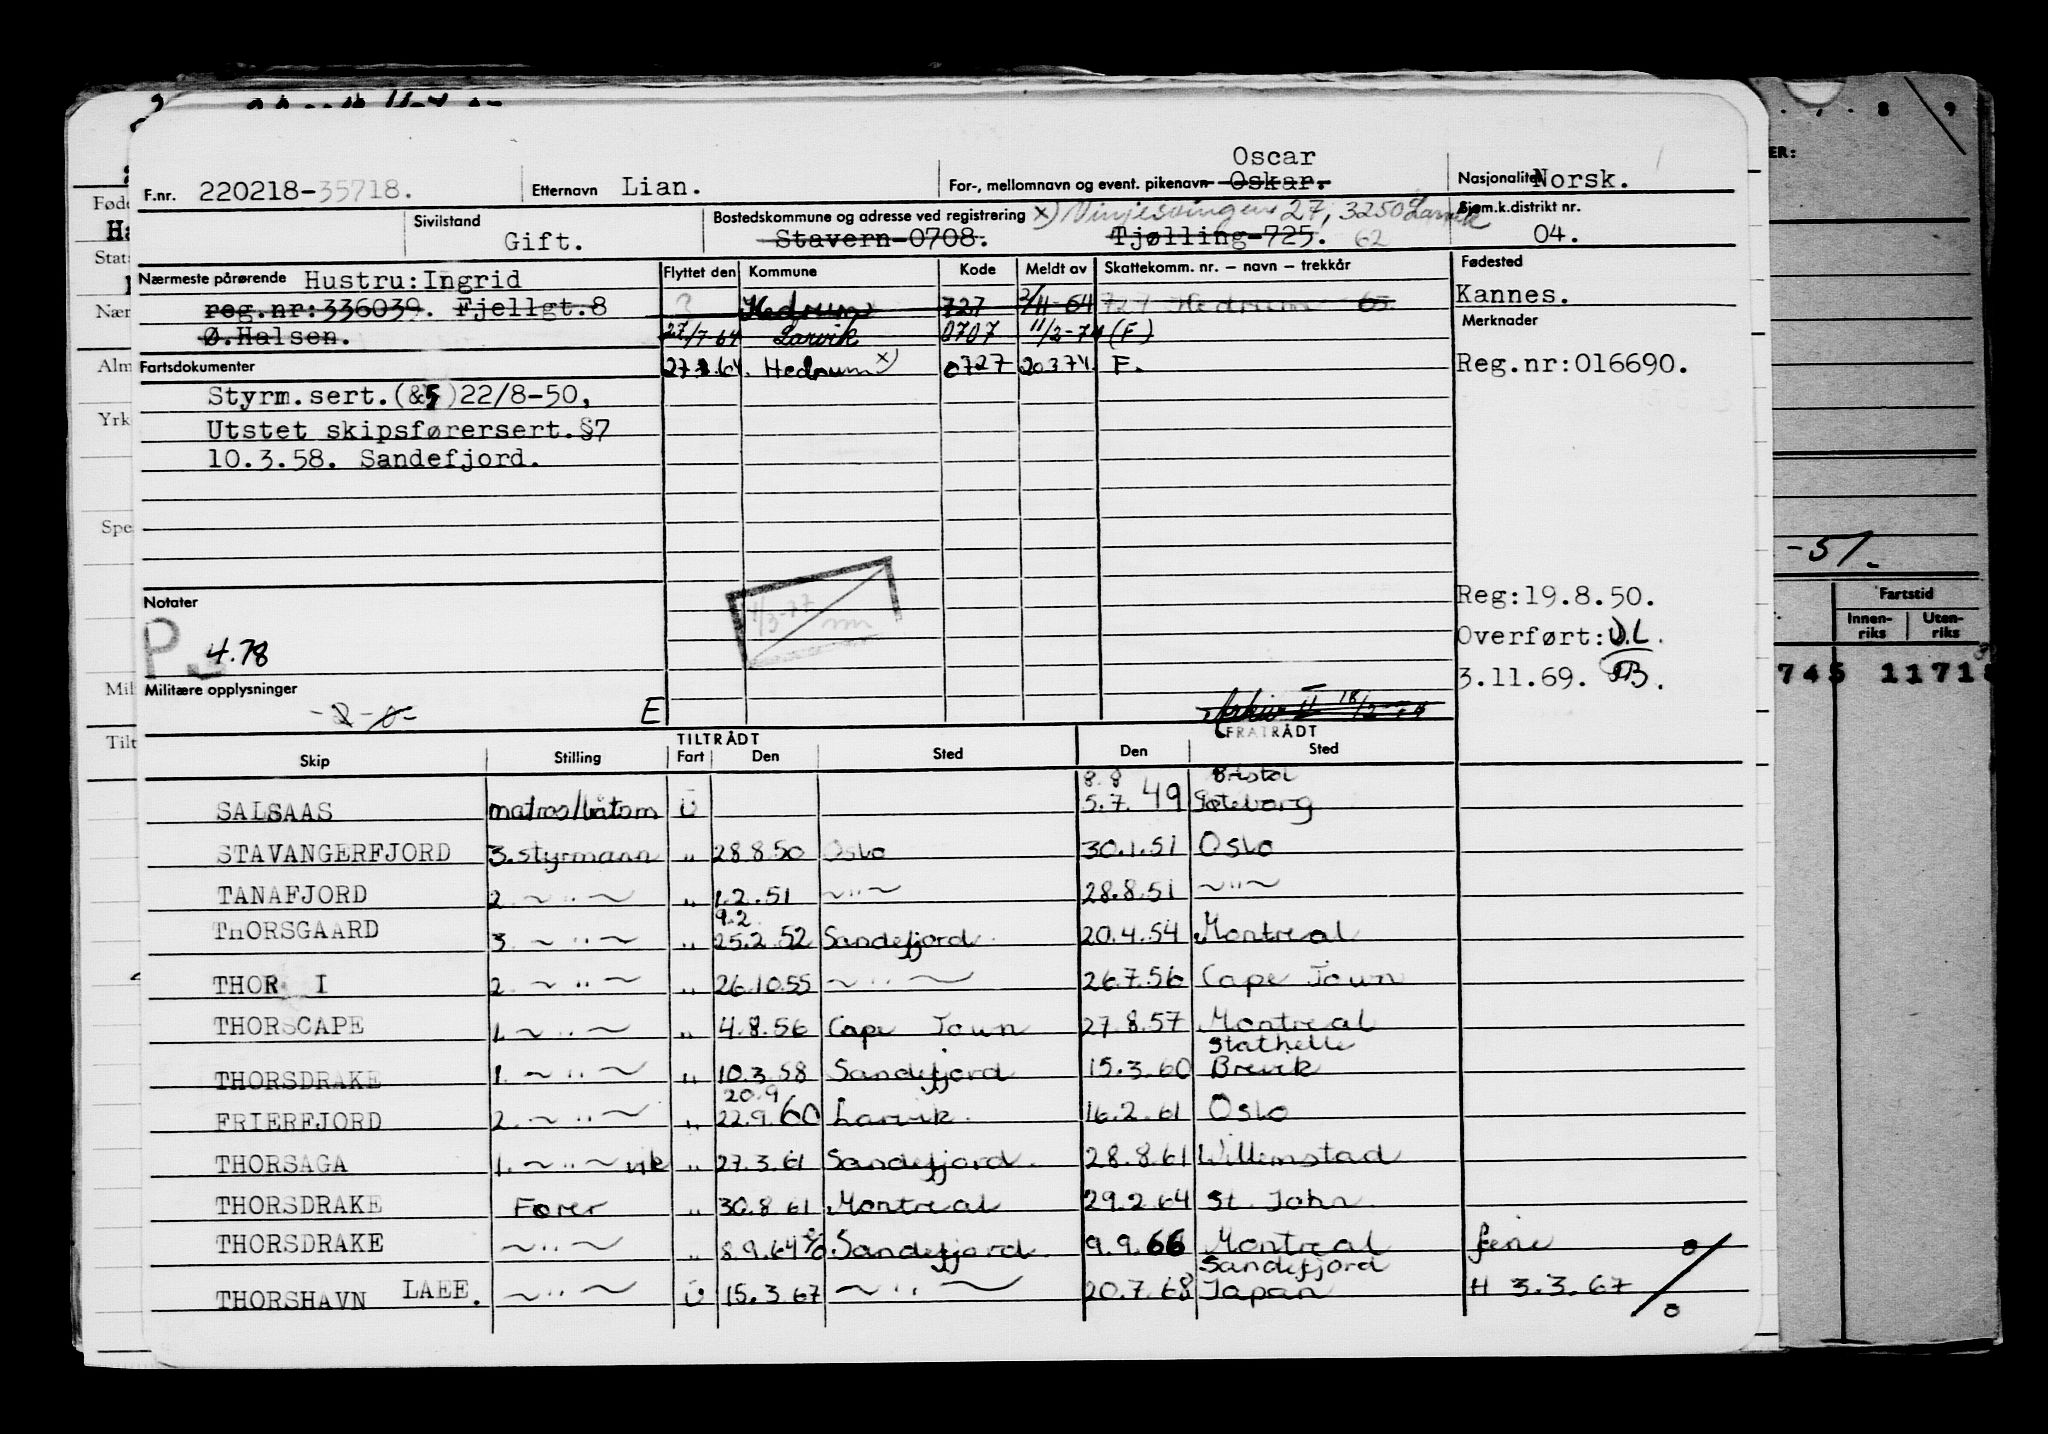 Oscar
F.nr. 220218-35718. Etternavn Lian. For-, mellomnavn og event. pikenavn Oskar. Nasjonalitet Norsk.
Sivilstand Gift. Bostedskommune og adresse ved registrering x) Vinjesvingen 27, 3250 Larvik Sjøm.k.distrikt nr. 04.
Stavern-0708. Tjølling-725. 62
Nærmeste pårørende Hustru:Ingrid Flyttet den Kommune Kode Meldt av Skattekomm. nr. – navn – trekkår Fødested
reg.nr:336039. Fjellgt.8 ? Hedrum 727 2/11-64 727 Hedrum 65 Kannes.
Ø.Halsen. 27/7-64 Larvik 0707 11/2-74 (F) Merknader
Fartsdokumenter 27.7.64. Hedrum x) 0727 20.3.74. F. Reg.nr:016690.
Styrm.sert.(&5)22/8-50,
Utstet skipsførersert.§7
10.3.58. Sandefjord.
Notater
P. 4.78
1/3-77
Reg:19.8.50.
Overført:U.L.
3.11.69. B.
Militære opplysninger
E
Arkiv II 18/2-74
TILTRÅDT FRATRÅDT
Skip Stilling Fart Den Sted Den Sted
8.8 Bristol
SALSAAS matros/båtsm U 5.7.49 Gøteborg
STAVANGERFJORD 3.styrmann " 28.8.50 Oslo 30.1.51 Oslo
TANAFJORD 2. ~"~ " 1.2.51 ~"~ 28.8.51 ~"~
9.2
THORSGAARD 3. ~"~ " 25.2.52 Sandefjord 20.4.54 Montreal
THOR I 2. ~"~ " 26.10.55 ~"~ 26.7.56 Cape Town
THORSCAPE 1. ~"~ " 4.8.56 Cape Town 27.8.57 Montreal
Stathelle
THORSDRAKE 1. ~"~ " 10.3.58 Sandefjord 15.3.60 Brevik
20.9
FRIERFJORD 2. ~"~ " 22.9.60 Larvik. 16.2.61 Oslo
THORSAGA 1. ~"~ vik " 27.3.61 Sandefjord. 28.8.61 Willemstad
THORSDRAKE Fører " 30.8.61 Montreal 29.2.64 St. John
THORSDRAKE ~"~ " 8.9.64 Sandefjord 9.9.66 Montreal ferie
Sandefjord
THORSHAVN LAEE. ~"~ U 15.3.67 ~"~ 20.7.68 Japan H 3.3.67
8 9
-51.
Fartstid
Innenriks Utenriks
745 11718